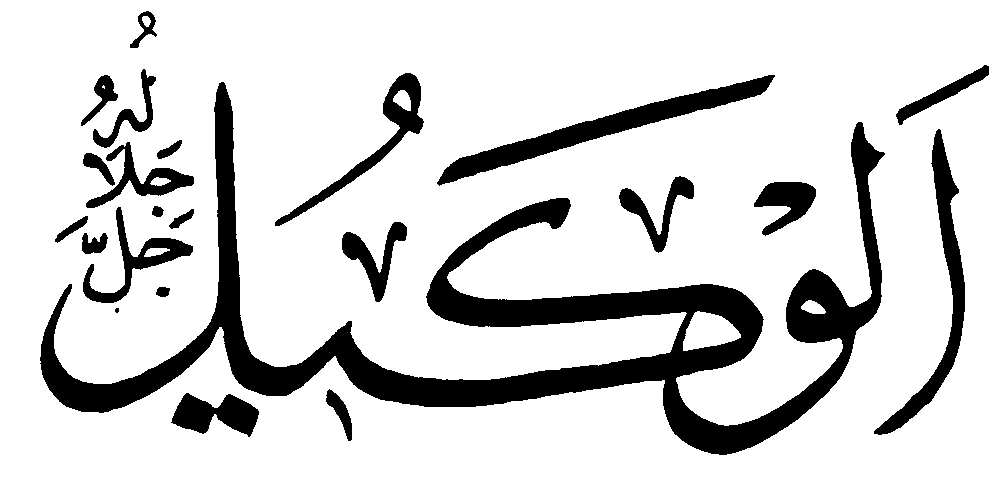 اَلْوَكِيلُ
جَلَّ جَلَالُهُ